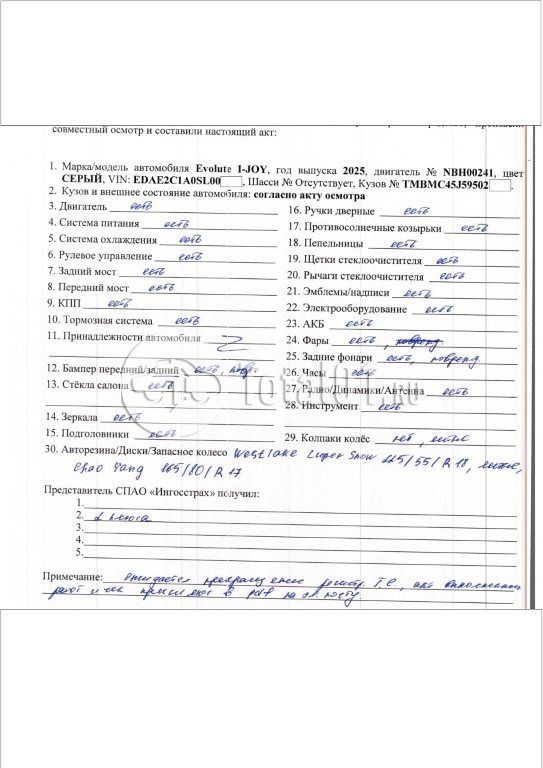 совместный осмотр и составили настоящий акт:
1. Марка/модель автомобиля Evolute I-JOY, год выпуска 2025, двигатель № NBH00241, цвет
СЕРЫЙ, VIN: EDAE2C1A0SL00 , Шасси № Отсутствует, Кузов № TMBMC45J59502 .
2. Кузов и внешнее состояние автомобиля: согласно акту осмотра
3. Двигатель есть
16. Ручки дверные есть
4. Система питания есть
17. Противосолнечные козырьки есть
5. Система охлаждения есть
18. Пепельницы есть
6. Рулевое управление есть
19. Щетки стеклоочистителя есть
7. Задний мост есть
20. Рычаги стеклоочистителя есть
8. Передний мост есть
21. Эмблемы/надписи есть
9. КПП есть
22. Электрооборудование есть
10. Тормозная система есть
23. АКБ есть
11. Принадлежности автомобиля
24. Фары есть,
25. Задние фонари есть, поврежд
12. Бампер передний/задний есть, повр.
26. Часы есть
13. Стёкла салона есть
27. Радио/Динамики/Антенна есть
28. Инструмент есть
14. Зеркала есть
15. Подголовники есть
29. Колпаки колёс нет, литые
30. Авторезина/Диски/Запасное колесо Westlake Super Snow 225/55/R18, литые,
Chao Yang /80/R17
Представитель СПАО «Ингосстрах» получил:
1.
2. 2 ключа
3.
4.
5.
Примечание: Ожидается прекращение регистр. Т.С., акт выполненных
работ и чек пришлют в pdf на эл. почту.
Total01.ru